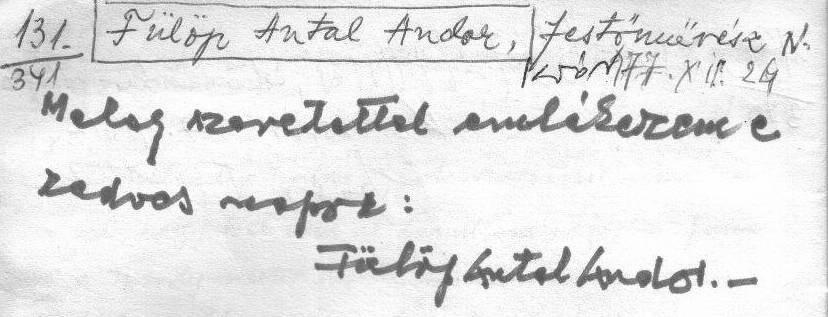 131. Fülöp Antal Andor, festőművész N.
341 77. XII. 29
Meleg szeretettel emlékezem e
kedves napra:
Fülöp Antal Andor. –